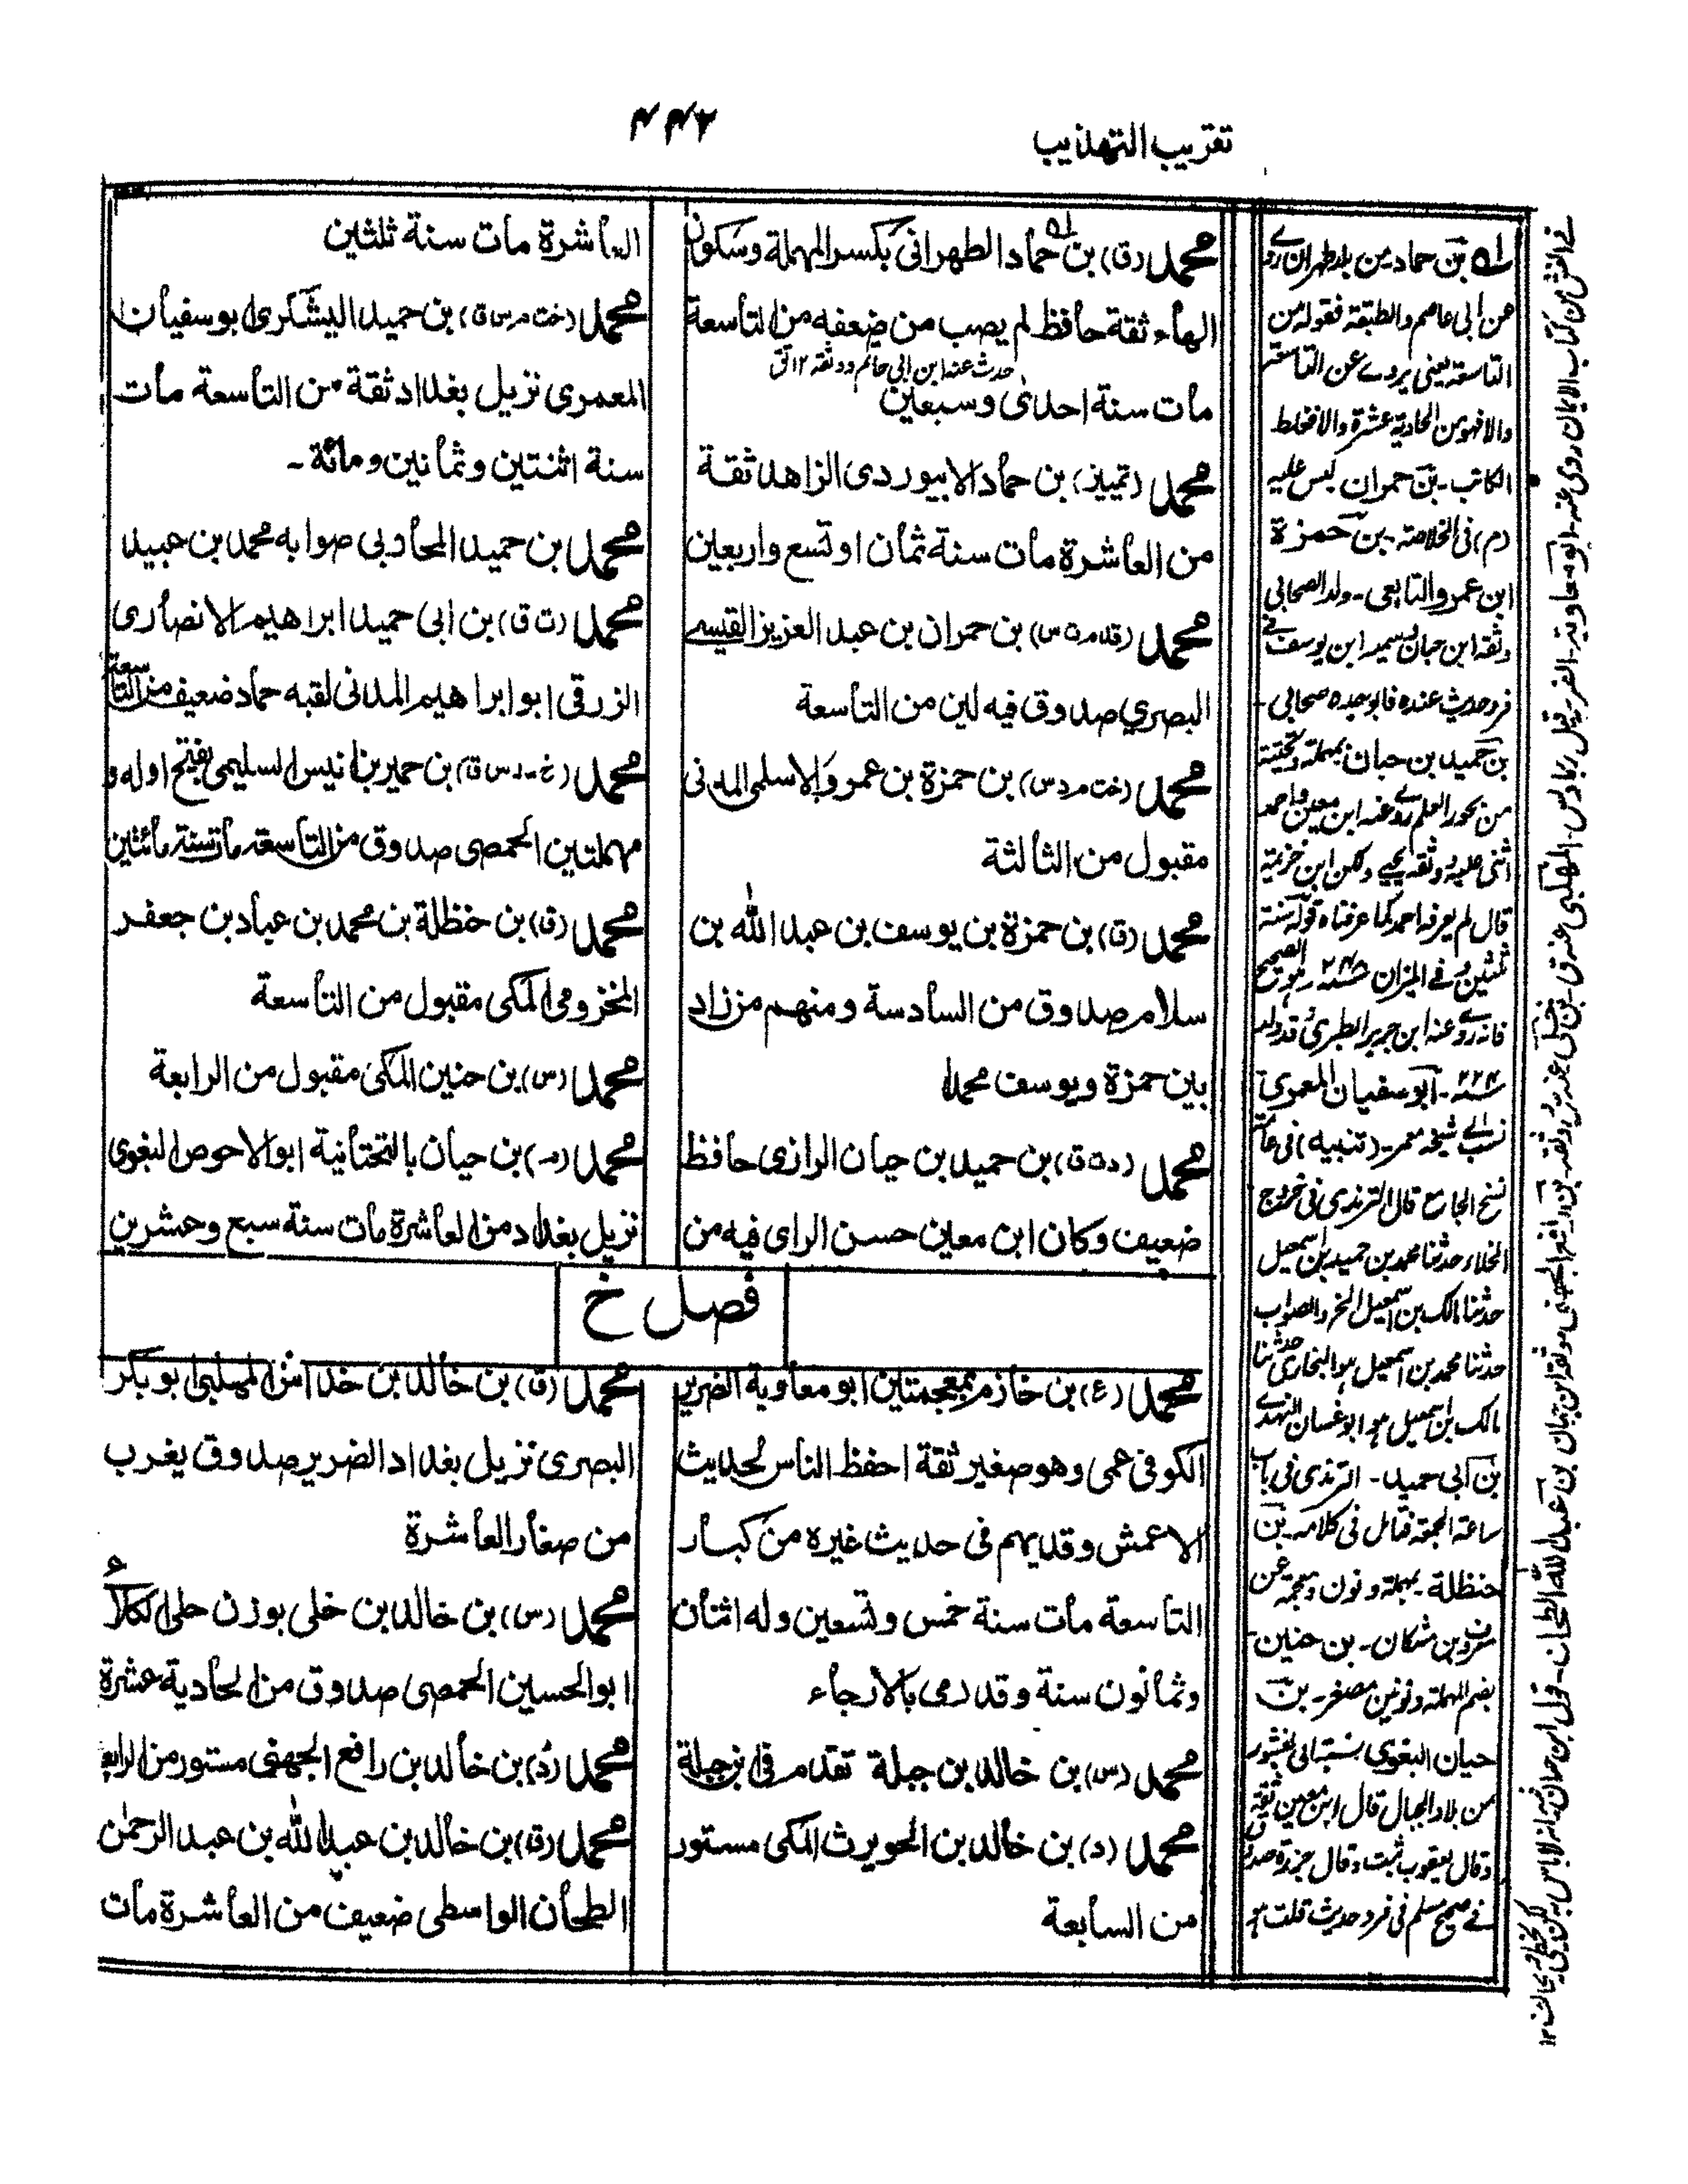 تقريب التهذيب
محمد (ق) بن حماد الطهراني بكسر المهملة وسكون
الهاء ثقة حافظ لم يصب من ضعفه من التاسعة
حدث عنه ابن ابي حاتم ووثقه ١٢ ق
مات سنة احدى وسبعين
محمد (تمييز) بن حماد الابيوردى الزاهد ثقة
من العاشرة مات سنة ثمان او تسع واربعين
محمد بن حمران بن عبد العزيز القيسے
البصري صدوق فيه لين من التاسعة
محمد (خت م د س) بن حمزة بن عمرو الاسلمى المدنى
مقبول من الثالثة
محمد (ق) بن حمزة بن يوسف بن عبد الله بن
سلام صدوق من السادسة ومنهم من زاد
بين حمزة ويوسف محمدا
محمد (د ت ق) بن حميد بن حيان الرازى حافظ
ضعيف وكان ابن معين حسن الراى فيه من
العاشرة مات سنة ثلثين
محمد (خت م س ق) بن حميد اليشكرى ابو سفيان
المعمرى نزيل بغداد ثقة من التاسعة مات
سنة اثنتين وثمانين ومائة -
محمد بن حميد المحاربى صوابه محمد بن عبيد
محمد (ت ق) بن ابى حميد ابراهيم الانصارى
الزرقى ابو ابراهيم المدنى لقبه حماد ضعيف من التاسعة
محمد (خ - د س ق) بن حمير بن انيس السليمى بفتح اوله و
مهملتين الحمصى صدوق من التاسعة مات سنة مائتين
محمد (ق) بن حنظلة بن محمد بن عباد بن جعفر
المخزومى المكى مقبول من التاسعة
محمد (س) بن حنين المكى مقبول من الرابعة
محمد (م) بن حيان بالتحتانية ابو الاحوص البغوى
نزيل بغداد من العاشرة مات سنة سبع وعشرين
فصل خ
محمد (ع) بن خازم بمعجمتين ابو معاوية الضرير
الكوفى عمى وهو صغير ثقة احفظ الناس لحديث
الاعمش وقد يهم فى حديث غيره من كبار
التاسعة مات سنة خمس وتسعين وله اثنان
وثمانون سنة وقد رمى بالارجاء
محمد (س) بن خالد بن جبلة تقدم فى ابن جبلة
محمد (د) بن خالد بن الحويرث المكى مستور
من السابعة
محمد (ق) بن خالد بن خداش المهلبى ابو بكر
البصرى نزيل بغداد الضرير صدوق يغرب
من صغار العاشرة
محمد (س) بن خالد بن خلى بوزن على الكلاعى
ابو الحسين الحمصى صدوق من الحادية عشرة
محمد (د) بن خالد بن رافع الجهنى مستور من الرابعة
محمد (ق) بن خالد بن عبد الله بن عبد الرحمن
الطحان الواسطى ضعيف من العاشرة مات
بن حماد من بلد طهران روے
عن ابى عاصم والطبقة فقوله من
التاسعة يعنى يروے عن التاسعة
والا فهو من الحادية عشرة والا فغلط
الكاتب - بن حمران ليس عليه
(م) فى الخلاصة - بن حمزة
ابن عمرو التابعى - ولد الصحابى
وثقه ابن حبان
فرد حديث عنده فابو جده صحابى -
بن حميد بن حيان بمهملة وتحتية
من بحور العلم روے عنه ابن معين واحمد
اثنى عليه وثقه يحيے ولكن ابن خزيمة
قال لم يعرفه احمد كما عرفناه قوله سنة
ثلثين فى الميزان سنة ٢٤٨ وهو الصحيح
فانه روے عنه ابن جرير الطبرى وقد ولد
سنة ٢٢٤ - ابو سفيان المعمرى
نسب الے شيخه معمر - (تنبيه) فى عامة
نسخ الجامع قال الترمذى فى خروج
الخلاء حدثنا محمد بن حميد بن اسمعيل
حدثنا مالك بن اسمعيل الخ والصواب
حدثنا محمد بن اسمعيل هو البخارى حدثنا
مالك بن اسمعيل هو ابو غسان النهدے
بن ابى حميد - الترمذى فى باب
ساعة الجمعة فقال فى كلامه - بن
حنظلة - بمهملة ونون ومعجمة عن
معروف بن مشكان - بن حنين -
بضم المهملة ونونين مصغر - بن
حيان البغوى نسبة الى بغشور
من بلاد الجبال قال ابن معين ثقة
وقال يعقوب ثبت وقال جزرة صدوق
فے صحيح مسلم فى فرد حديث قلت هو